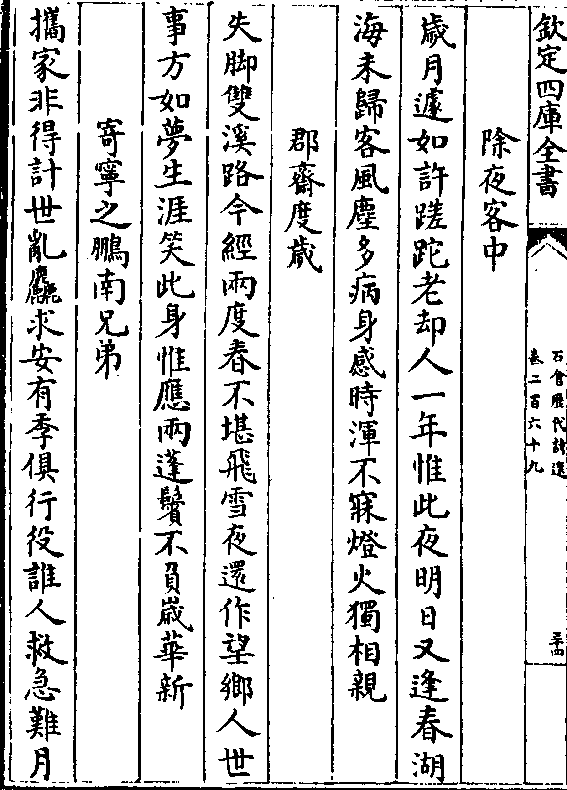 欽定四庫全書
石倉歷代詩選
卷二百六十九
三十四
除夜客中
歲月遽如許蹉跎老却人一年惟此夜明日又逢春湖
海未歸客風塵多病身感時渾不寐燈火獨相親
郡齋度歲
失脚雙溪路今經兩度春不堪飛雪夜還作望鄉人世
事方如夢生涯笑此身惟應兩蓬鬢不負歲華新
寄寧之鵬南兄弟
攜家非得計世亂麤求安有季俱行役誰人救急難月